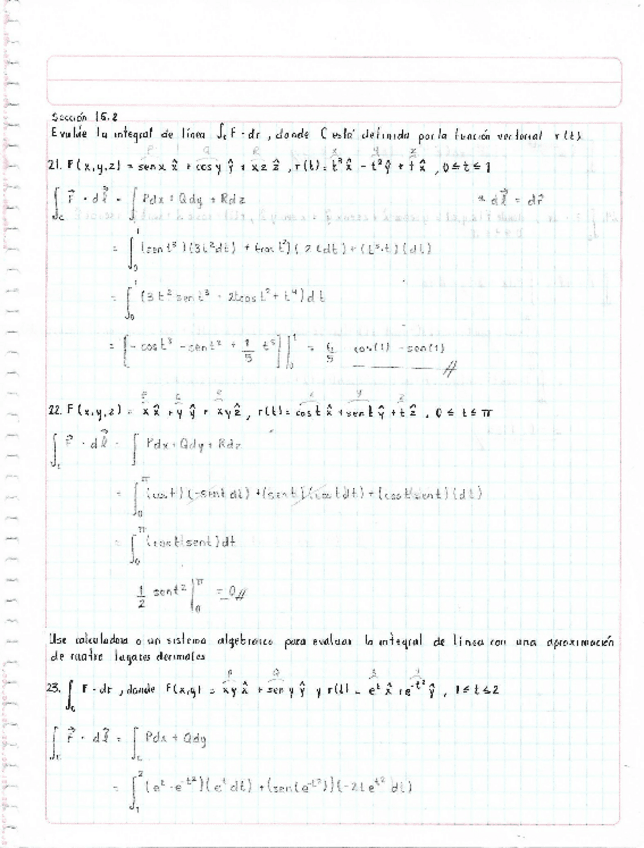 Sección 16.2
Evalúe la integral de línea ∫c F · dr, donde C está definida por la función vectorial r(t)
P Q R x y z
21. F(x,y,z) = senx x̂ + cosy ŷ + xz ẑ, r(t) = t³ x̂ - t² ŷ + t ẑ, 0≤t≤1
∫c F⃗ · dl⃗ = ∫ Pdx + Qdy + Rdz * dl⃗ = dr⃗
= ∫₀¹ (sen t³)(3t²dt) + (cos t²)(-2tdt) + (t³·t)(dt)
= ∫₀¹ (3t² sen t³ - 2tcos t² + t⁴)dt
= [-cos t³ - sen t² + 1/5 t⁵]|₀¹ = 6/5 cos(1) - sen(1)
P Q R x y z
22. F(x,y,z) = x x̂ + y ŷ + xy ẑ, r(t) = cost x̂ + sent ŷ + t ẑ, 0≤t≤π
∫c F⃗ · dl⃗ = ∫ Pdx + Qdy + Rdz
= ∫₀^π (cost)(-sent dt) + (sent)(cost dt) + (cost sent)(dt)
= ∫₀^π (cost sent)dt
1/2 sent² |₀^π = 0
Use calculadora o un sistema algebraico para evaluar la integral de línea con una aproximación
de cuatro lugares decimales
P Q x y
23. ∫c F · dr, donde F(x,y) = xy x̂ + sen y ŷ y r(t) = eᵗ x̂ + e^-t² ŷ, 1≤t≤2
∫c F⃗ · dl⃗ = ∫c Pdx + Qdy
= ∫₁² (eᵗ · e^-t²)(eᵗ dt) + (sen(e^-t²))(-2te^-t² dt)